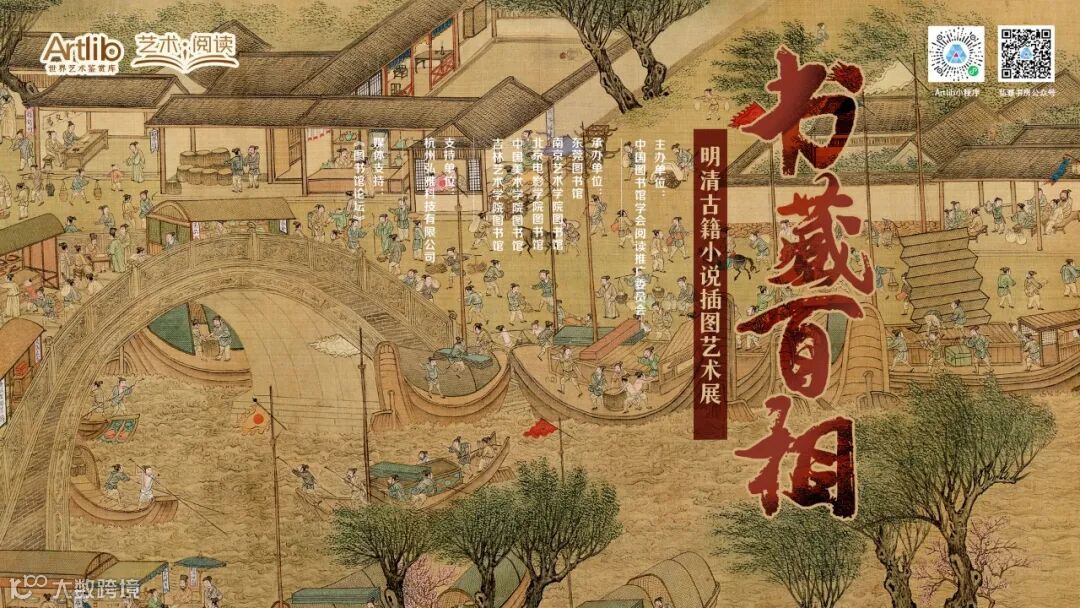 Artlib
世界艺术鉴赏库
艺术·阅读
Artlib小程序
弘雅书房公众号
书藏百相
明清古籍小说插图艺术展
主办单位：
中国图书馆学会阅读推广委员会
承办单位：
东莞图书馆
南京艺术学院图书馆
北京电影学院图书馆
中国美术学院图书馆
吉林艺术学院图书馆
支持单位：
杭州弘雅科技有限公司
媒体支持：
《图书馆论坛》
大数跨境